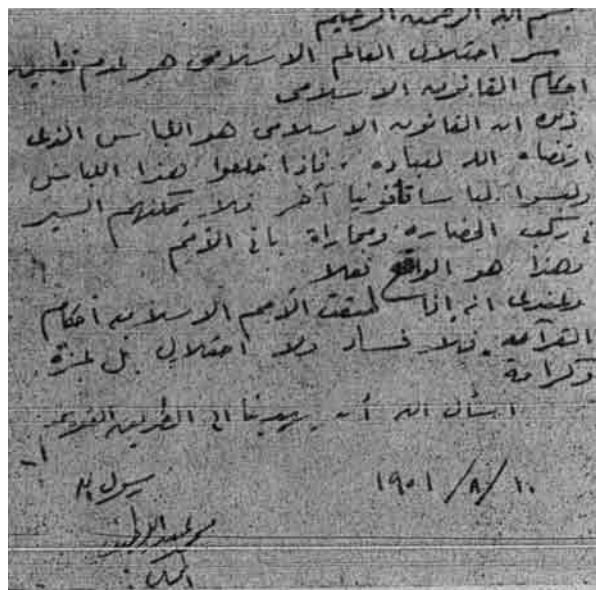 بسم الله الرحمن الرحيم
سر احتلال العالم الاسلامى هو عدم تطبيق
احكام القانون الاسلامى
ذلك ان القانون الاسلامى هو اللباس الذى
ارتضاه الله لعباده . فاذا خلعوا هذا اللباس
ولبسوا لباسا قانونيا آخر فلا يمكنهم السير
فى ركب الحضاره ومجاراة باقى الأمم
وهذا هو الواقع فعلا
وعندى انه إذا طبقت الأمم الاسلاميه احكام
القرآن فلا فساد ولا احتلال بل عزة
وكرامة
اسأل الله أن يهدينا الى الطريق القويم
١٠/٨/١٩٥١